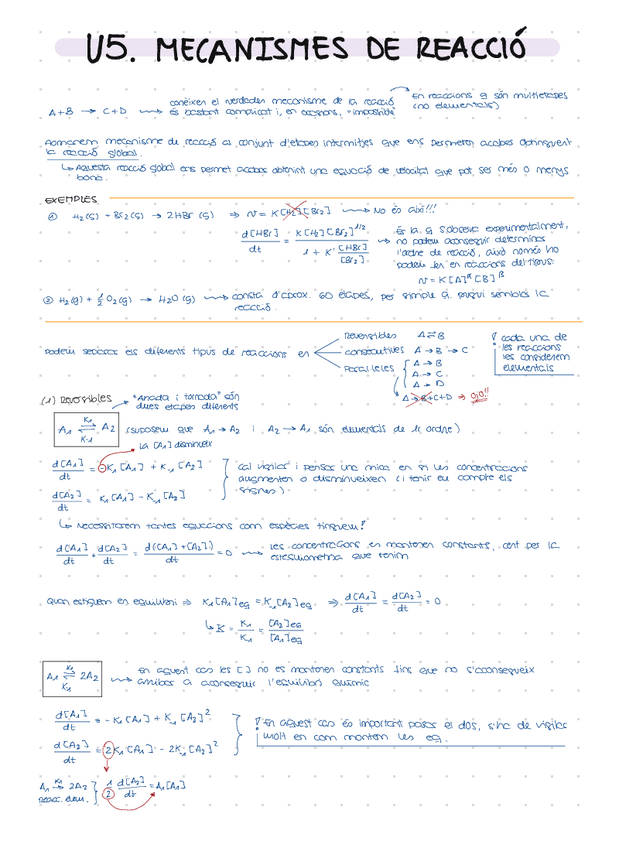 U5. MECANISMES DE REACCIÓ
A+B → C+D ⟿ conèixen el verdader mecanisme de la reacció
és bastant complicat i, en ocasions, "impossible"
En reaccions g són multietapes
(no elementals)
Anomenem mecanisme de reacció al conjunt d'etapes intermitjes que ens permeten acabar obtinguent
la reacció global.
↳ Aquesta reacció global ens permet acabar obtenint una equació de velocitat que pot ser més o menys
bona.
EXEMPLES
① H₂(g) + Br₂(g) → 2HBr(g) ⇒ v = K[H₂][Br₂] ⟿ No és així!!!
d[HBr]/dt = K[H₂][Br₂]^1/2 / (1 + K' [HBr]/[Br₂])
És la q s'observa experimentalment,
no podem aconseguir determinar
l'ordre de reacció, això només ho
podem fer en reaccions del tipus:
v = K[A]^α[B]^β
② H₂(g) + 1/2 O₂(g) → H₂O(g) ⟿ consta d'aprox. 60 etapes, per simple q pugui semblar la
reacció.
Podem separar els diferents tipus de reaccions en
Reversibles A ⇌ B
consecutives A → B → C
Paral·leles A → B
A → C
A → D
A → B+C+D → ojo!!
! cada una de
les reaccions
les considerem
elementals
(1) Reversibles
"Anada i tornada" són
dues etapes diferents
A₁ ⇌ A₂ K₁ K₋₁ (suposem que A₁→A₂ i A₂→A₁ són elementals de 1r ordre)
la [A₁] disminueix
d[A₁]/dt = -K₁[A₁] + K₋₁[A₂]
d[A₂]/dt = K₁[A₁] - K₋₁[A₂]
cal vigilar i pensar una mica en si les concentracions
augmenten o disminueixen (i tenir en compte els
signes).
↳ Necessitarem tantes equacions com espècies tinguem!
d[A₁]/dt + d[A₂]/dt = d([A₁]+[A₂])/dt = 0 ⟿ les concentracions en mantenen constants, donat per la
estequiometria que tenim
Quan estiguem en equilibri ⇒ K₁[A₁]eq = K₋₁[A₂]eq ⇒ d[A₁]/dt = d[A₂]/dt = 0
↳ K = K₁/K₋₁ = [A₂]eq/[A₁]eq
A₁ ⇌ 2A₂ K₁ K₋₁ ⟿ en aquest cas les [ ] no es mantenen constants fins que no s'aconsegueix
arribar a aconseguir l'equilibri químic
d[A₁]/dt = -K₁[A₁] + K₋₁[A₂]²
d[A₂]/dt = 2K₁[A₁] - 2K₋₁[A₂]²
! En aquest cas és important posar el dos, s'ha de vigilar
molt en com muntem les eq.
A₁ →K₁ 2A₂
reacc. elem.
1/2 d[A₂]/dt = K₁[A₁]